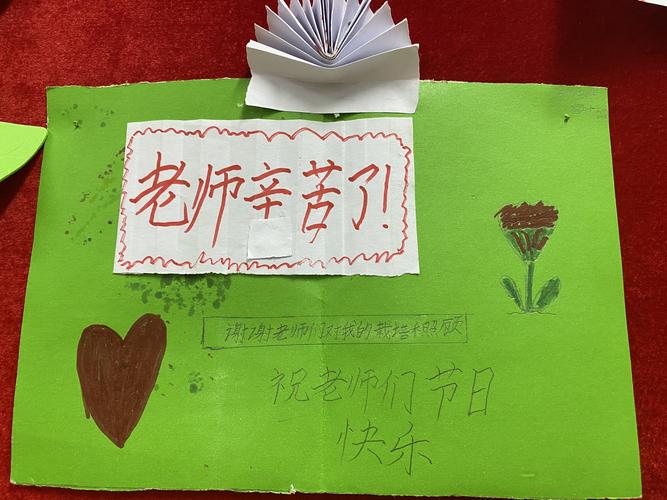 老师辛苦了!
谢谢老师们对我的栽培和照顾
祝老师们节日
快乐